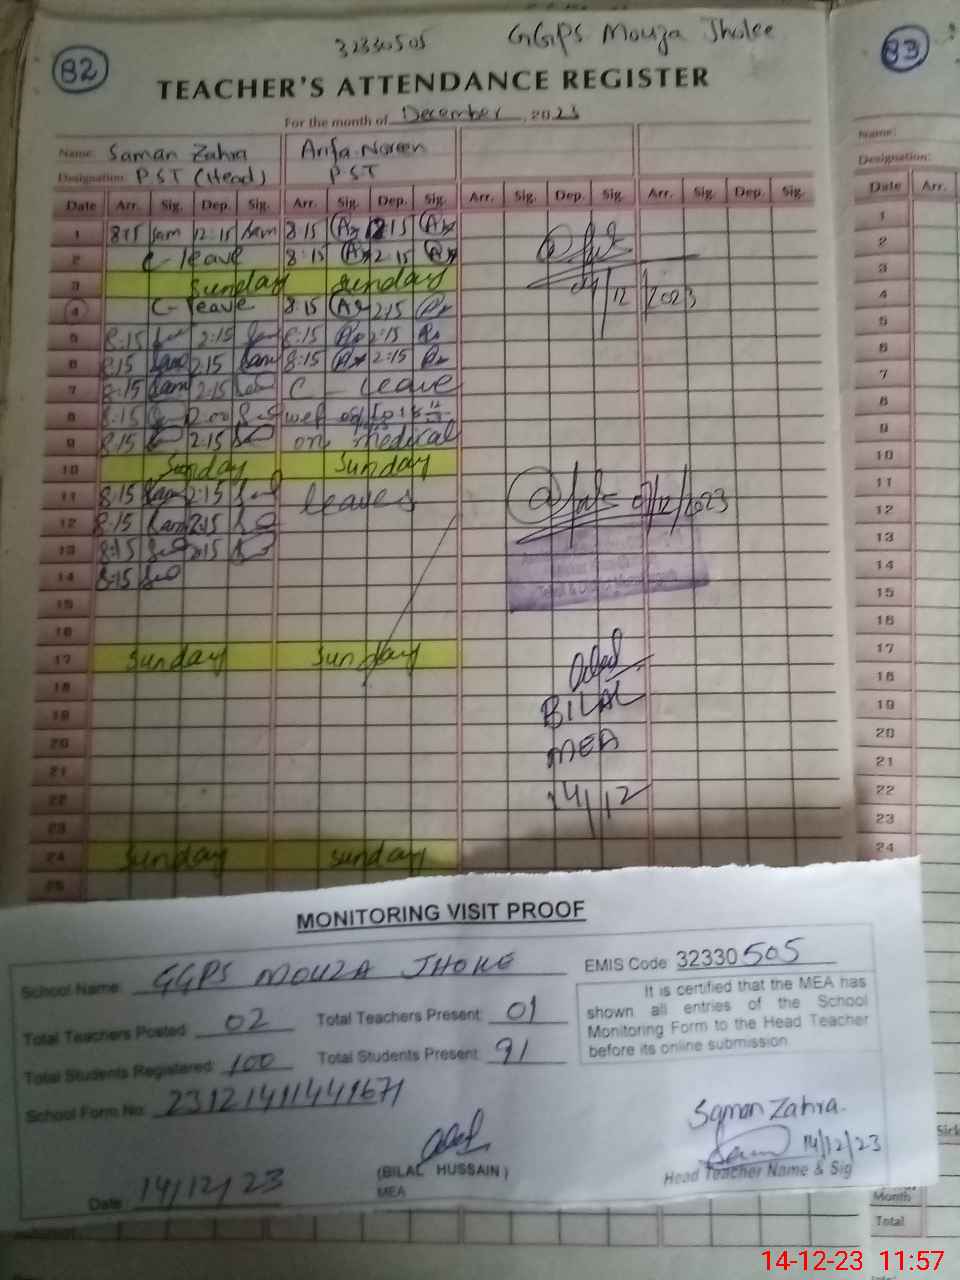 32330505 GGPS Mouza Jhoke
82
83
TEACHER'S ATTENDANCE REGISTER
For the month of December, 2023
Name: Saman Zahra Arifa Noreen
Name:
Designation: P.S.T (Head) P.S.T
Designation:
Date Arr. Sig. Dep. Sig. Arr. Sig. Dep. Sig. Arr. Sig. Dep. Sig. Arr. Sig. Dep. Sig.
Date Arr.
1 8:15 Sam 12:15 Sam 8:15 2:15
2 C-leave 8:15 2:15
3 Sunday Sunday
4 C-leave 8:15 2:15
04/12/2023
5 8:15 2:15 8:15 2:15
6 8:15 Sam 2:15 Sam 8:15 2:15
7 8:15 Sam 2:15 C leave
8 8:15 wef
9 8:15 2:15 on medical
10 Sunday Sunday
11 8:15 Sam 2:15 leaves
12 8:15 Sam 2:15
13 8:15 2:15
14 8:15
15
16
17 Sunday Sunday
18
19 BILAL
20 MEA
21
22 14/12
23
24 Sunday Sunday
25
1
2
3
4
5
6
7
8
9
10
11
12
13
14
15
16
17
18
19
20
21
22
23
24
MONITORING VISIT PROOF
School Name: GGPS MOUZA JHOKE EMIS Code 32330505
Total Teachers Posted 02 Total Teachers Present: 01
Total Students Registered: 100 Total Students Present: 91
It is certified that the MEA has
shown all entries of the School
Monitoring Form to the Head Teacher
before its online submission
School Form No: 23121411441671
Saman Zahra.
14/12/23
(BILAL HUSSAIN)
MEA
Head Teacher Name & Sig
Date: 14/12/23
Month
Total
14-12-23 11:57